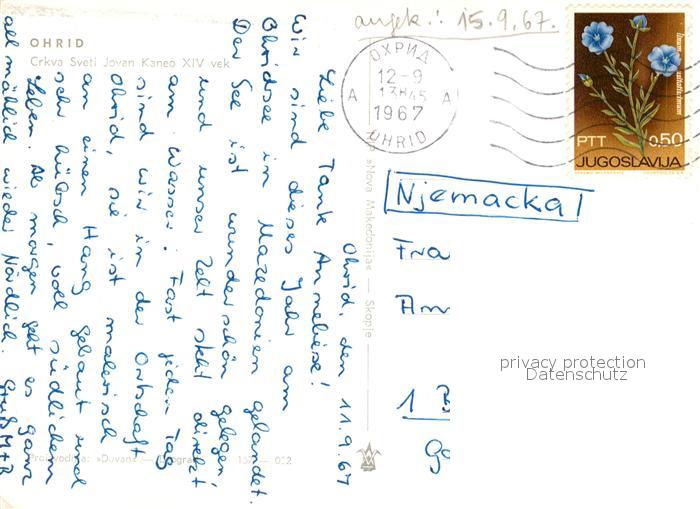 OHRID
Crkva Sveti Jovan Kaneo XIV vek
angek.: 15.9.67.
ОХРИД
12-9
13H45
A A
1967
OHRID
PTT 0.50
JUGOSLAVIJA
Ohrid, den 11.9.67
Liebe Tante Anneliese!
Wir sind dieses Jahr am
Ohridsee in Mazedonien gelandet.
Der See ist wunderschön gelegen
und unser Zelt steht direkt
am Wasser. Fast jeden Tag
sind wir in der Ortschaft
Ohrid, sie ist malerisch
an einen Hang gebaut und
sehr hübsch, voll südlichem
Leben. Ab morgen geht es ganz
allmählich wieder Nördlich. Gruß M+R
Njemacka
Fra
Am
1 B
»Nova Makedonija« — Skopje
Proizvodnja: »Duvan« —
privacy protection
Datenschutz